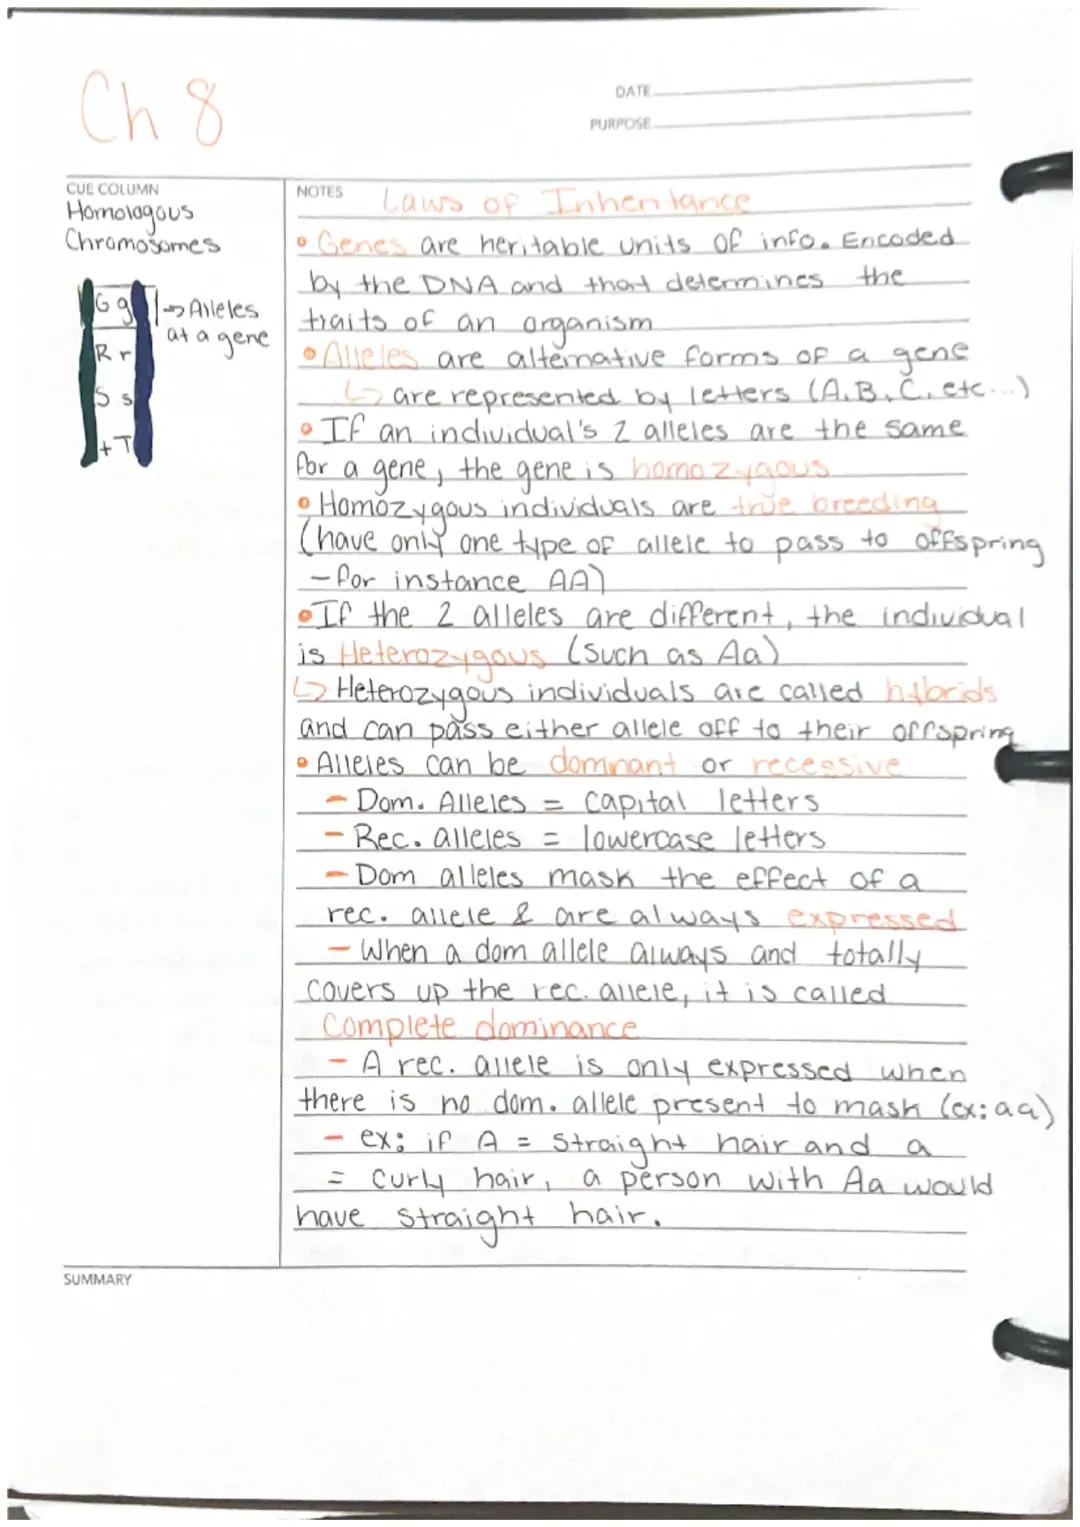 Ch 8
DATE
PURPOSE
CUE COLUMN
Homologous
Chromosomes
G g → Alleles
at a gene
R r
S s
t T
NOTES
Laws of Inheritance
• Genes are heritable units of info. Encoded
by the DNA and that determines the
traits of an organism
• Alleles are alternative forms of a gene
↳ are represented by letters (A, B, C, etc...)
• If an individual's 2 alleles are the same
for a gene, the gene is homozygous
• Homozygous individuals are true breeding
(have only one type of allele to pass to offspring
- for instance AA)
• If the 2 alleles are different, the individual
is Heterozygous (such as Aa)
↳ Heterozygous individuals are called hybrids
and can pass either allele off to their offspring
• Alleles can be dominant or recessive
- Dom. Alleles = capital letters
- Rec. alleles = lowercase letters
- Dom alleles mask the effect of a
rec. allele & are always expressed
- When a dom allele always and totally
covers up the rec. allele, it is called
Complete dominance
- A rec. allele is only expressed when
there is no dom. allele present to mask (ex: aa)
- ex: if A = straight hair and a
= curly hair, a person with Aa would
have straight hair.
SUMMARY